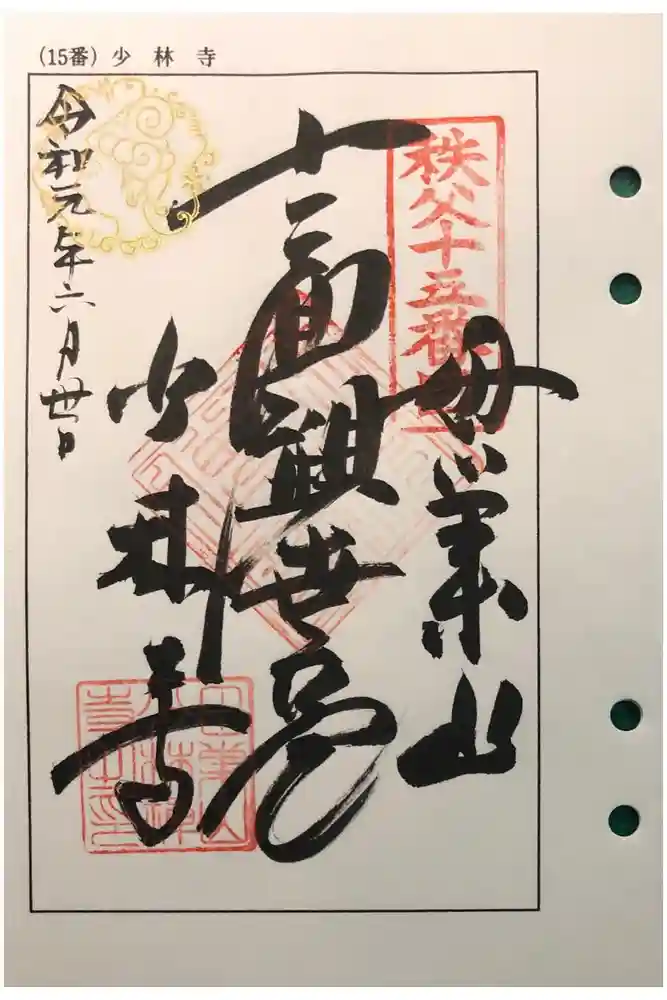 (15番) 少林寺
秩父十五番
母巣山
十一面観世音
少林寺
令和元年六月丗日